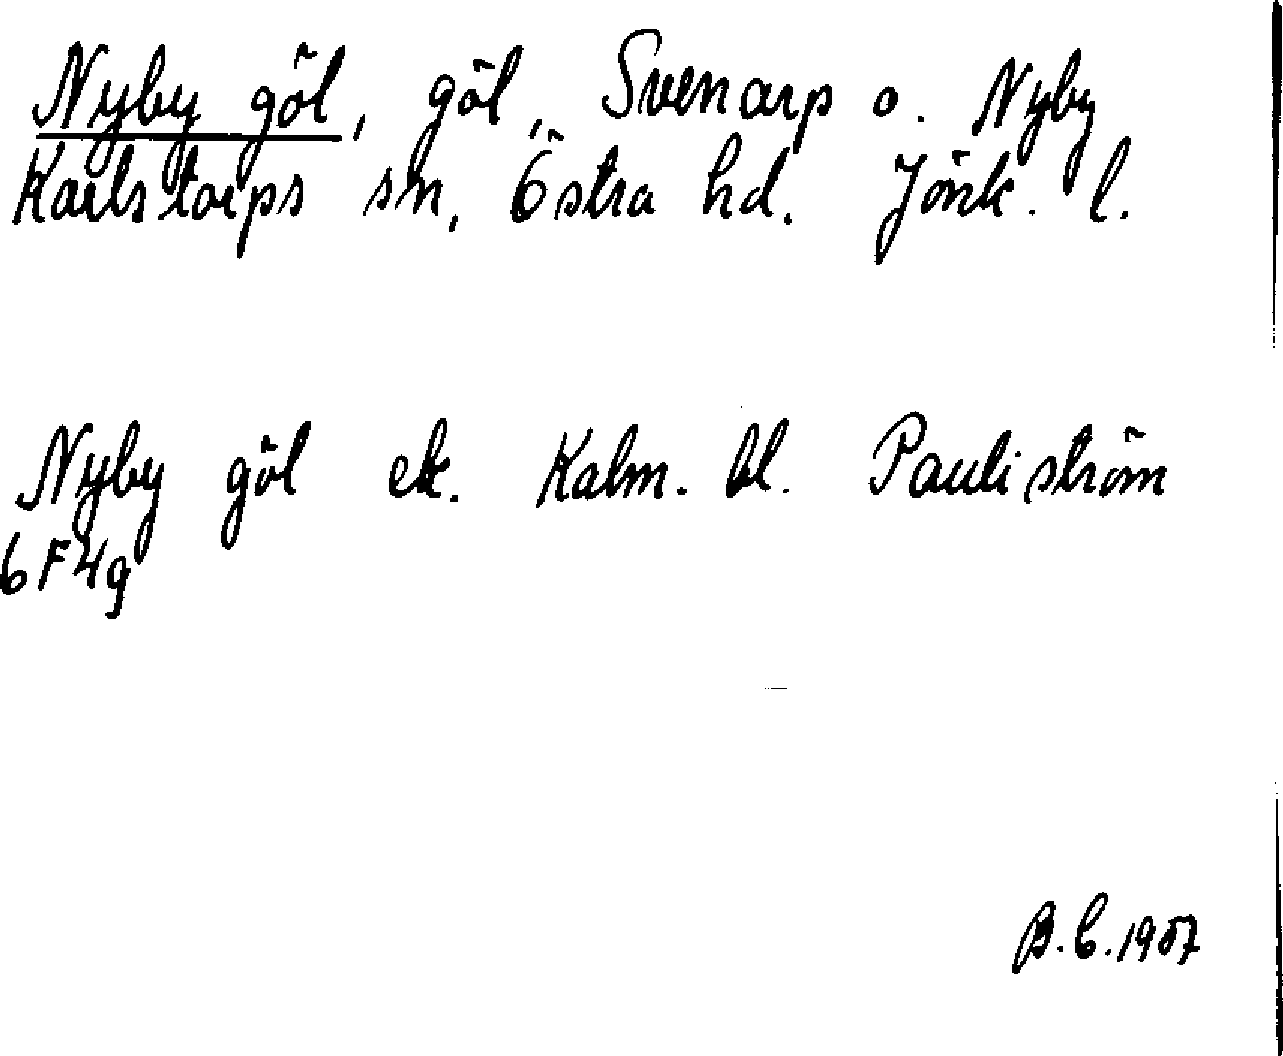 Nyby göl, göl, Svenarp o. Nyby
Karlstorps sn, Östra hd. Jönk. l.
Nyby göl ek. Kalm. bl. Pauliström
6F4g
B.C.1957